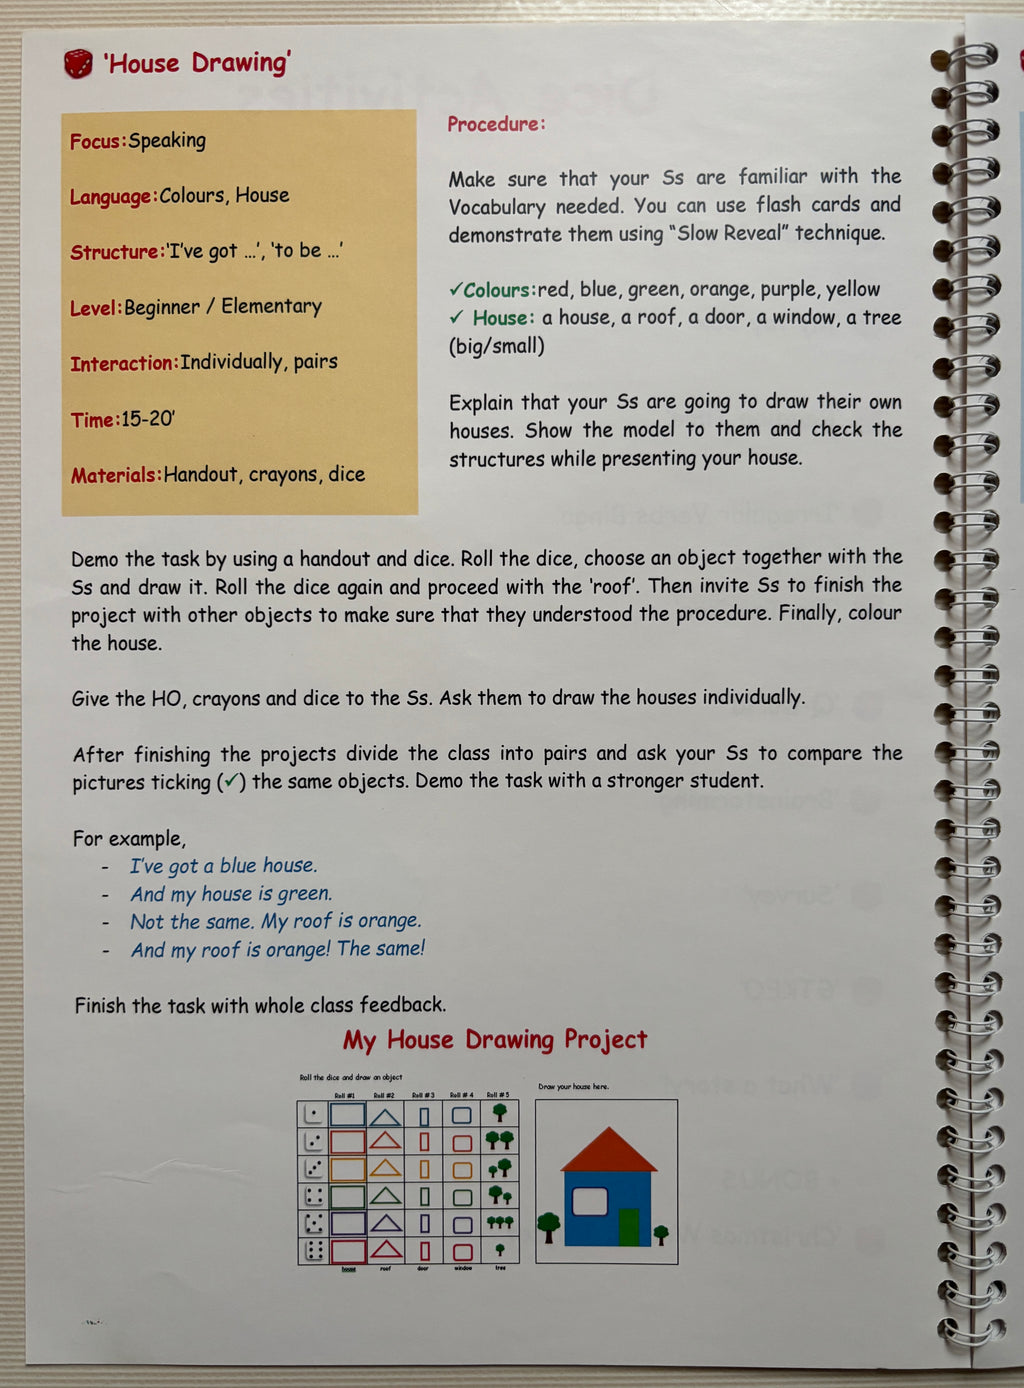 'House Drawing'
Focus:Speaking
Language:Colours, House
Structure:'I've got ...', 'to be ...'
Level:Beginner / Elementary
Interaction:Individually, pairs
Time:15-20'
Materials:Handout, crayons, dice
Procedure:
Make sure that your Ss are familiar with the
Vocabulary needed. You can use flash cards and
demonstrate them using "Slow Reveal" technique.
✓Colours:red, blue, green, orange, purple, yellow
✓ House: a house, a roof, a door, a window, a tree
(big/small)
Explain that your Ss are going to draw their own
houses. Show the model to them and check the
structures while presenting your house.
Demo the task by using a handout and dice. Roll the dice, choose an object together with the
Ss and draw it. Roll the dice again and proceed with the 'roof'. Then invite Ss to finish the
project with other objects to make sure that they understood the procedure. Finally, colour
the house.
Give the HO, crayons and dice to the Ss. Ask them to draw the houses individually.
After finishing the projects divide the class into pairs and ask your Ss to compare the
pictures ticking (✓) the same objects. Demo the task with a stronger student.
For example,
- I've got a blue house.
- And my house is green.
- Not the same. My roof is orange.
- And my roof is orange! The same!
Finish the task with whole class feedback.
My House Drawing Project
Roll the dice and draw an object
Roll #1 Roll #2 Roll #3 Roll # 4 Roll #5
house roof door window tree
Draw your house here.